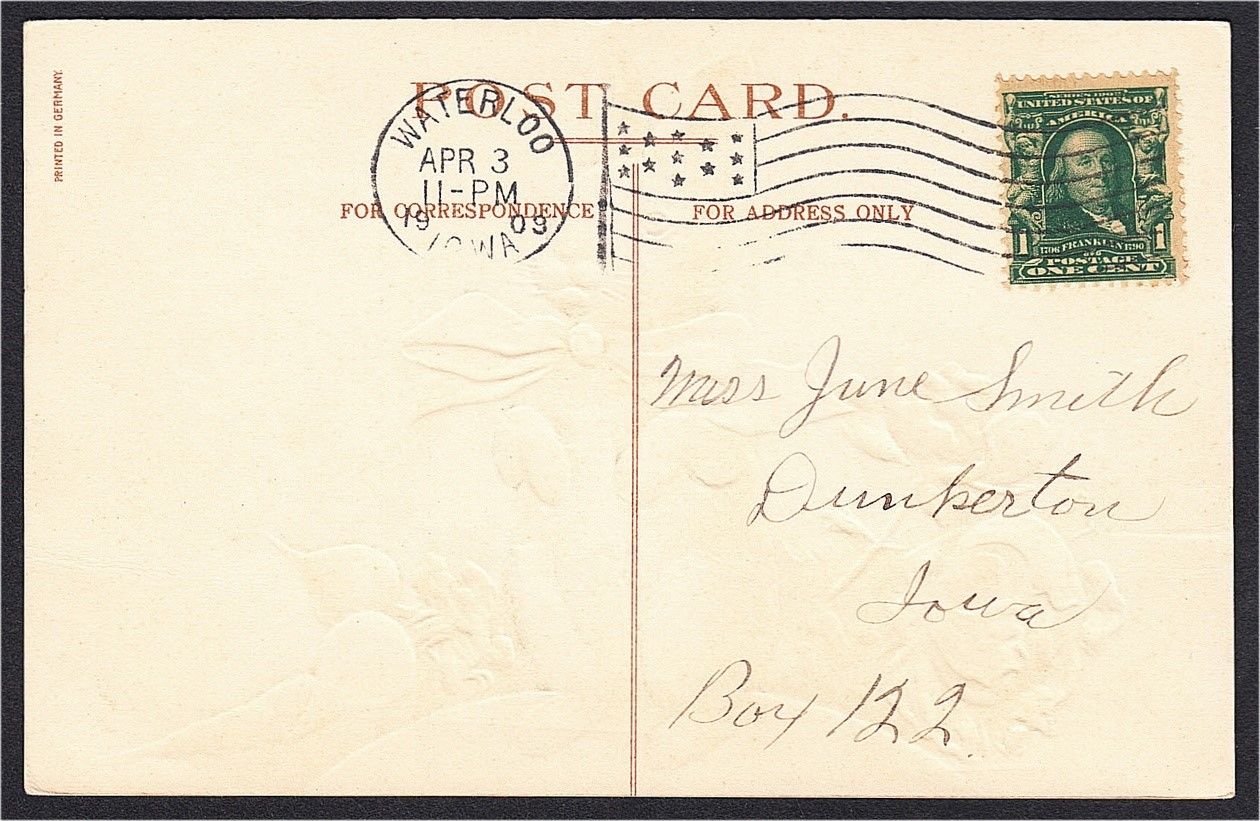 PRINTED IN GERMANY.
POST CARD.
WATERLOO
APR 3
11-PM
19 09
IOWA
FOR CORRESPONDENCE
FOR ADDRESS ONLY
SERIES 1902
UNITED STATES OF
AMERICA
1 1706 FRANKLIN 1790 1
POSTAGE
ONE CENT
Miss June Smith
Dunkerton
Iowa
Box 122.